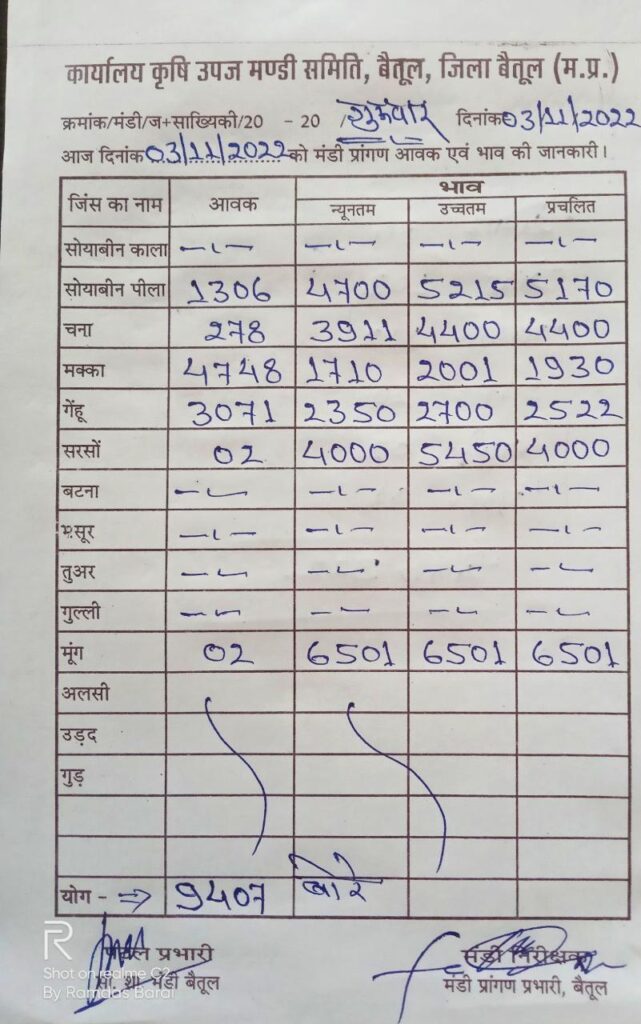 कार्यालय कृषि उपज मण्डी समिति, बैतूल, जिला बैतूल (म.प्र.)
क्रमांक/मंडी/ज+साख्यिकी/20 - 20 /शुक्रवार दिनांक 03/11/2022
आज दिनांक 03/11/2022 को मंडी प्रांगण आवक एवं भाव की जानकारी।
जिंस का नाम आवक भाव
न्यूनतम उच्चतम प्रचलित
सोयाबीन काला -ı- -ı- -ı- -ı-
सोयाबीन पीला 1306 4700 5215 5170
चना 278 3911 4400 4400
मक्का 4748 1710 2001 1930
गेंहू 3071 2350 2700 2522
सरसों 02 4000 5450 4000
बटना -ı- -ı- -ı- -ı-
मसूर -ı- -ı- -ı- -ı-
तुअर -ı- -ı- -ı- -ı-
गुल्ली -ı- -ı- -ı- -ı-
मूंग 02 6501 6501 6501
अलसी
उड़द
गुड़
योग - ⇒ 9407 बोरे
प्रभारी मंडी निरीक्षक
मंडी बैतूल मंडी प्रांगण प्रभारी, बैतूल
R
Shot on realme C2
By Ramdas Barai